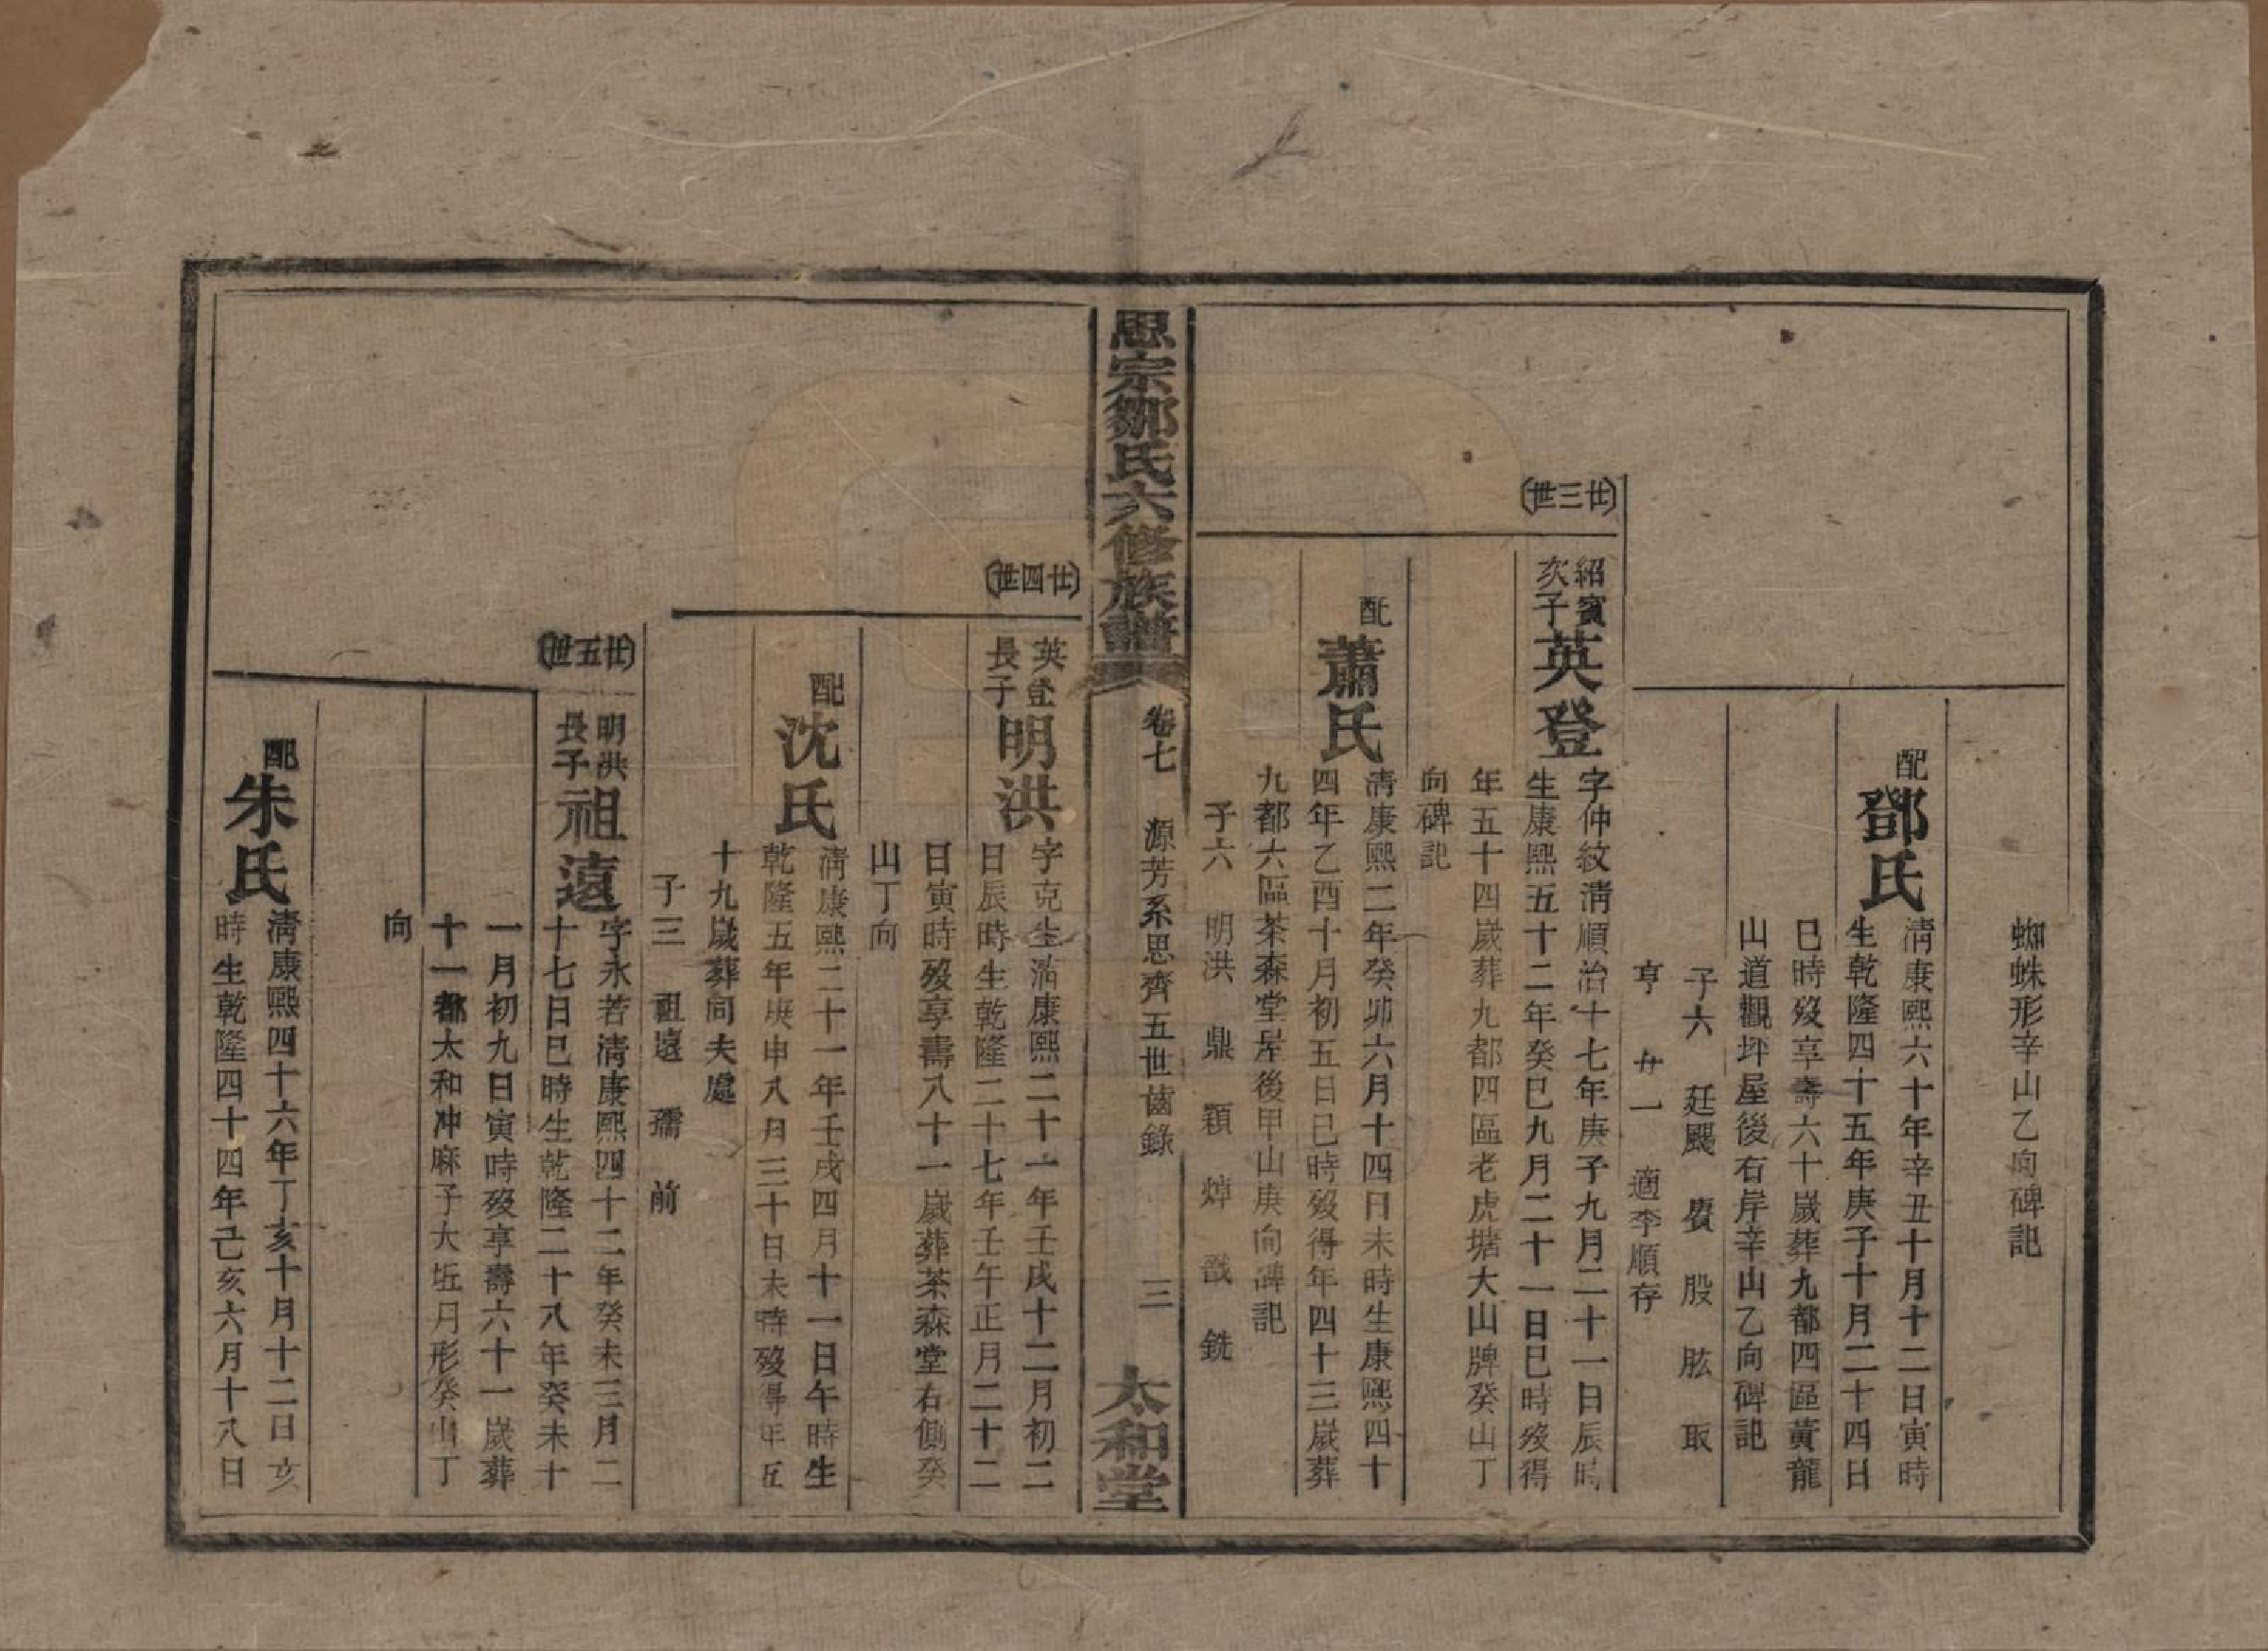 蜘蛛形辛山乙向碑記
配
鄧氏
清康熙六十年辛丑十月十二日寅時
生乾隆四十五年庚子十月二十四日
巳時歿享壽六十歲葬九都四區黃龍
山道觀坪屋後右岸辛山乙向碑記
子六 廷颺 賡 股 肱 取
亨 廾一 適李順存
廿三世
紹賓
次子
英登
字仲紋清順治十七年庚子九月二十一日辰時
生康熙五十二年癸巳九月二十一日巳時歿得
年五十四歲葬九都四區老虎塘大山牌癸山丁
向碑記
配
蕭氏
清康熙二年癸卯六月十四日未時生康熙四十
四年乙酉十月初五日巳時歿得年四十三歲葬
九都六區茶森堂屋後甲山庚向碑記
子六 明洪 鼎 穎 焯 戩 銑
思宗鄒氏六修族譜
卷七 源芳系思齊五世齒錄
三
太和堂
廿四世
英登
長子
明洪
字克生清康熙二十一年壬戌十二月初二
日辰時生乾隆二十七年壬午正月二十二
日寅時歿享壽八十一歲葬茶森堂右側癸
山丁向
配
沈氏
清康熙二十一年壬戌四月十一日午時生
乾隆五年庚申八月三十日未時歿得年五
十九歲葬同夫處
子三 祖遠 孺 前
廿五世
明洪
長子
祖遠
字永若清康熙四十二年癸未三月二
十七日巳時生乾隆二十八年癸未十
一月初九日寅時歿享壽六十一歲葬
十一都太和冲麻子大坵月形癸山丁
向
配
朱氏
清康熙四十六年丁亥十月十二日亥
時生乾隆四十四年己亥六月十八日